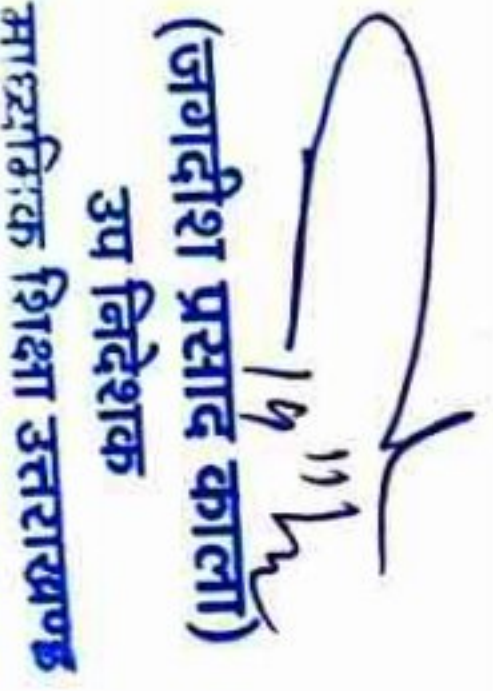 (जगदीश प्रसाद काला)
उप निदेशक
माध्यमिक शिक्षा उत्तराखण्ड